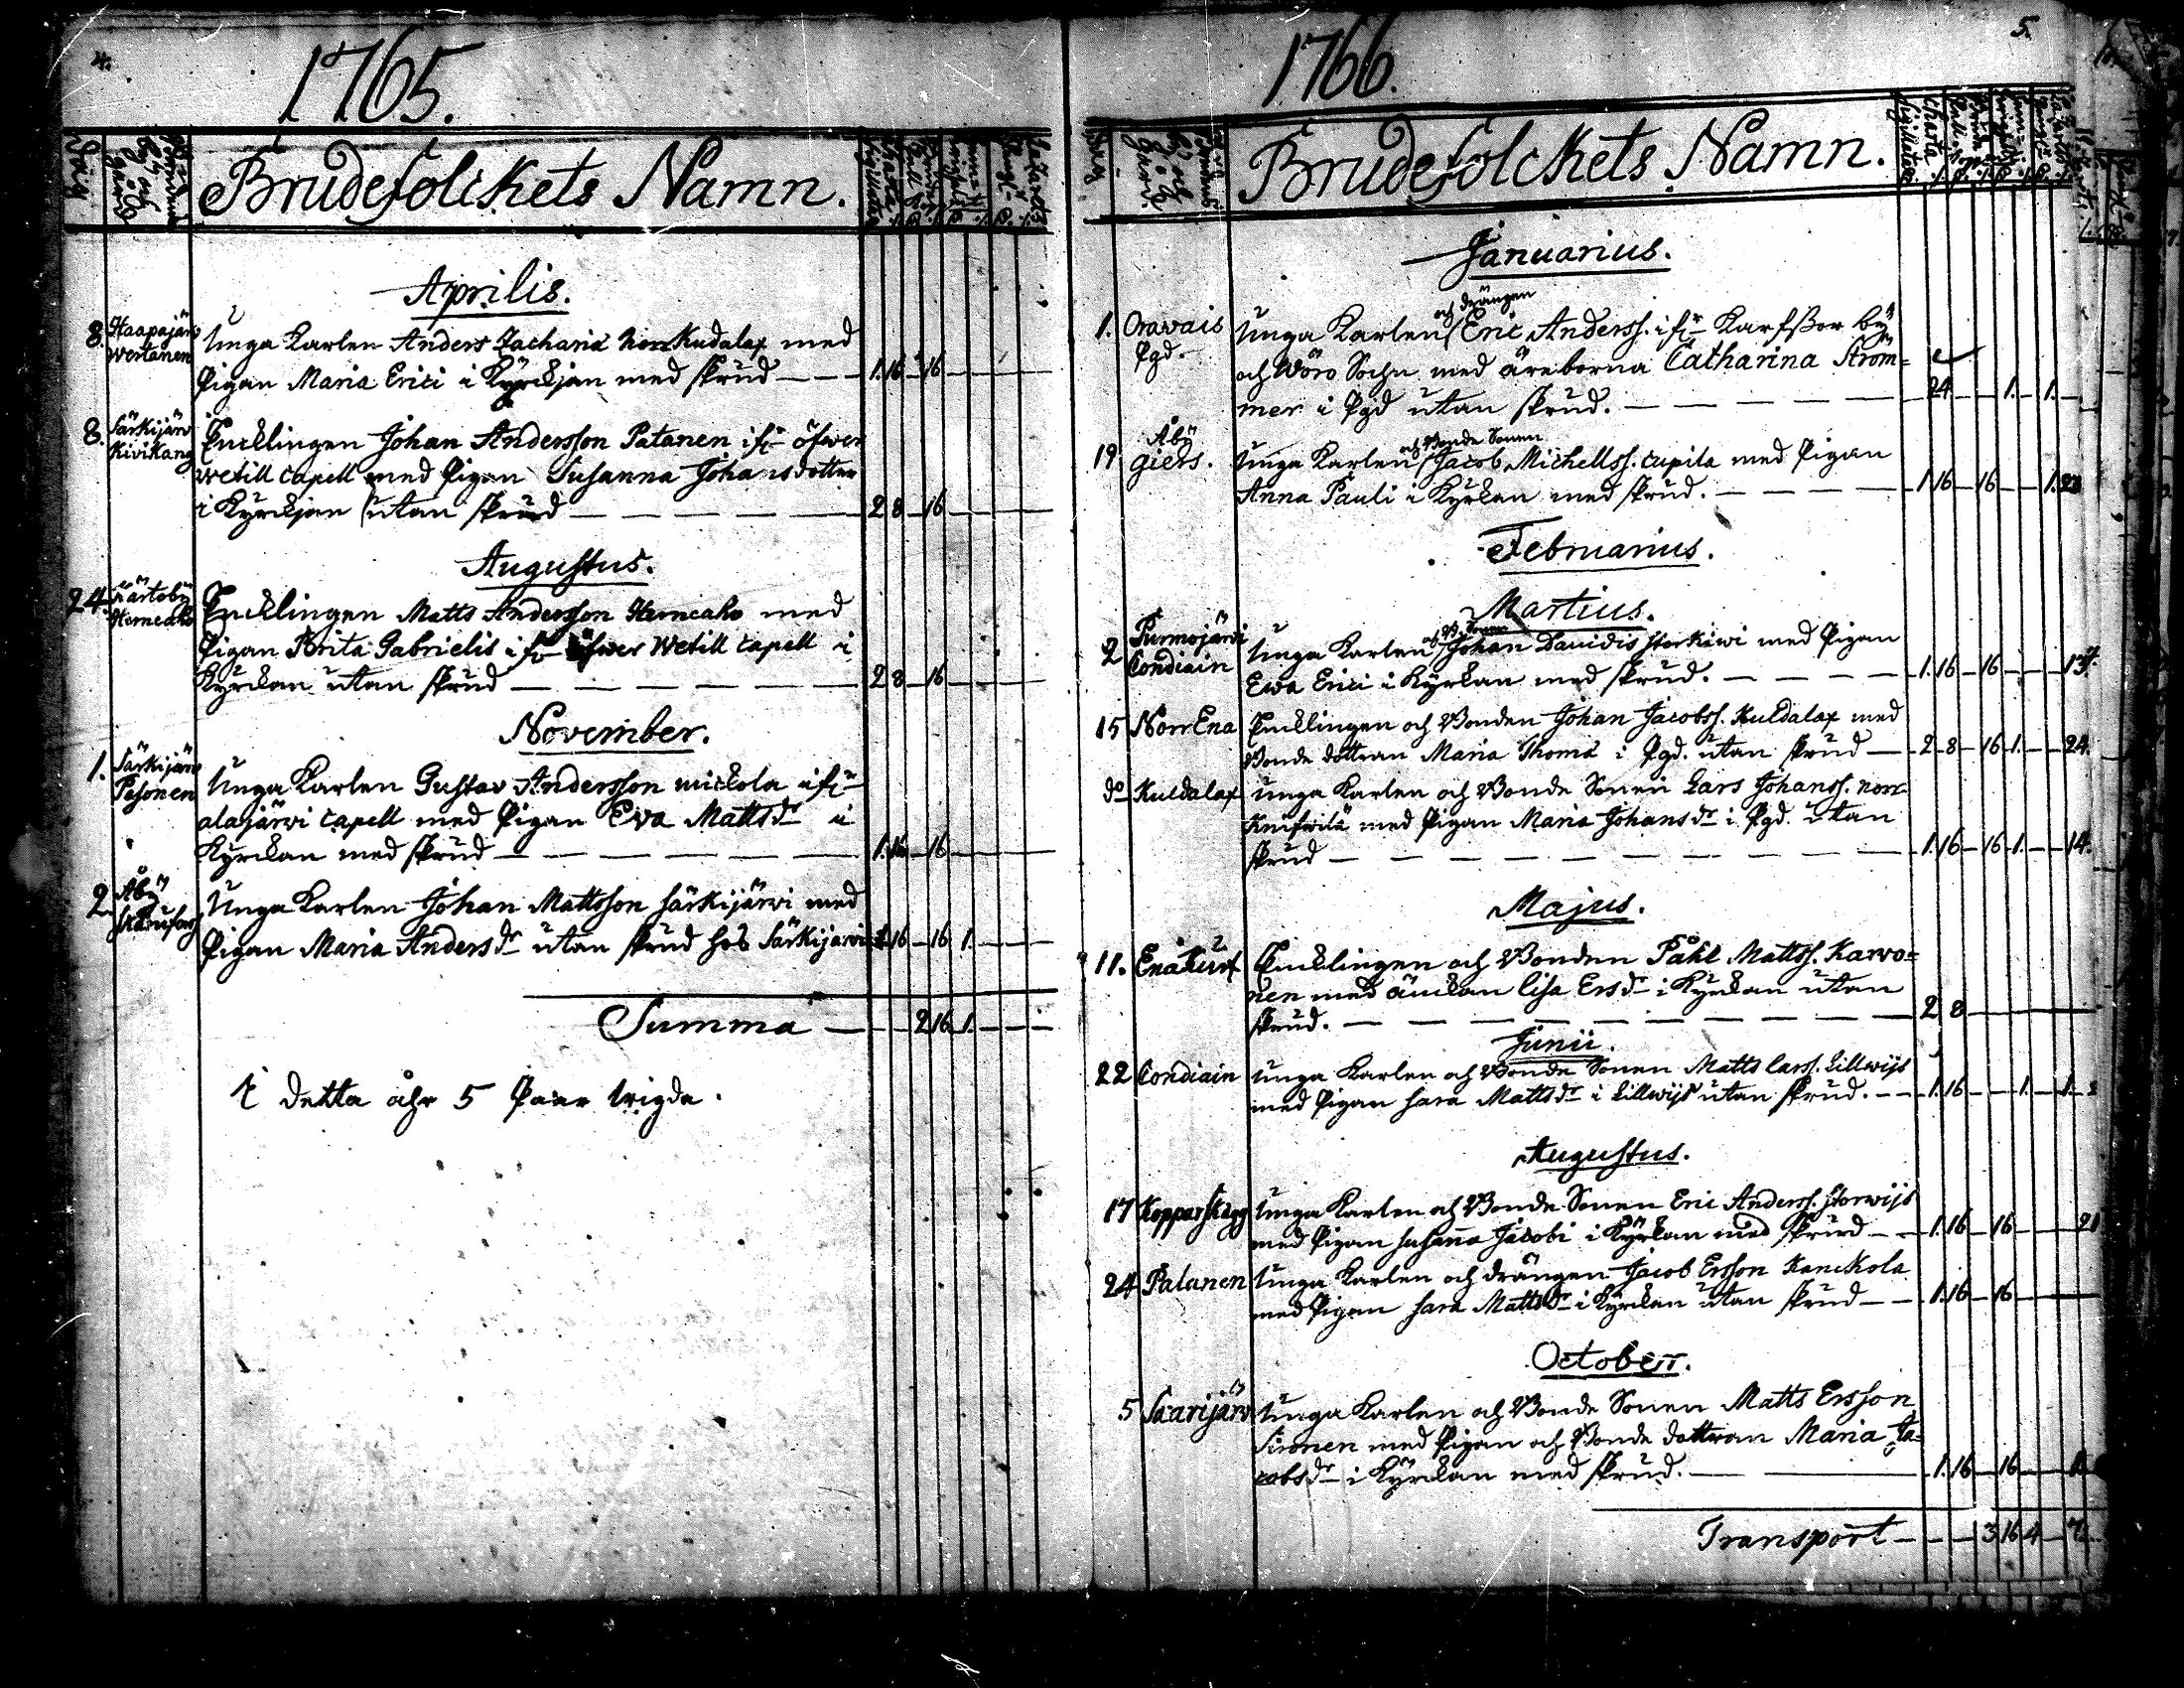 4.
1765.
Brudefolckets Namn.
Aprilis.
8. Haapajärv Wertanen Unga Karlen Anders Zachariæ Norrkudalax med
Pigan Maria Erici i Kyrckjan med skrud — 1. 16 — 16
8. Särkijärv Kivikang Encklingen Johan Andersson Patanen ifr öfwer
wetill Capell med Pigan Susanna Johansdotter
i Kyrckjan utan skrud — 2 8 — 16
Augustus.
24. Herneaho Encklingen Matts Andersson Herneaho med
Pigan Brita Gabrielis ifr öfwer Wetill Capell i
Kyrckan utan skrud — 2 8 — 16
November.
1. Särkijärv Pesonen Unga Karlen Gustav Andersson mickola ifr
alajärwi Capell med Pigan Eva Mattsdr i
Kyrckan med skrud — 1. 16 — 16
2. Åbÿ Unga Karlen Johan Mattsson särkijärwi med
Pigan Maria Andersdr utan skrud hos Särkijärwi 1 16 — 16 1.
Summa — 2 16 1.
I detta åhr 5 Paar wigde.
5.
1766.
Brudefolckets Namn.
Januarius.
och drängen
1. Oravais Unga Karlen Eric Anderss. ifr by
Pgd. och Wörå Sochn med äreborna Catharina Ström=
mer i Pgd utan skrud. — 24 — 1. — 1.
och Bonde Sonen
19 Åbÿ Giers. Unga Karlen Jacob Michellss. cupila med Pigan
Anna Pauli i Kyrkan med skrud. — 1 16 — 16
Februarius.
Martius.
2 Purmojärvi Condiain Unga Karlen Johan Davidis storkiwi med Pigan
Ewa Erici i Kyrkan med skrud. — 1. 16 — 16
15 NorrEna Encklingen och Bonden Johan Jacobss. Kuldalax med
Bonde dottran Maria Thomæ i Pgd. utan skrud — 2 8 — 16 1. — 24.
do Kuldalax unga Karlen och Bonde Sonen Lars Johanss. norr
med Pigan Maria Johansdr i Pgd. utan
skrud — 1. 16 — 16 1. — 14.
Majus.
11. Enäkurt Encklingen och Bonden Påhl Mattss. Karvo=
nen med änckan lisa Ersdr i Kyrckan utan
skrud. — 2 8
Junii.
22 Condiain unga Karlen och Bonde Sonen Matts Larss. Lillwijs
med Pigan sara Mattsdr i Lillwijs utan skrud. — 1. 16 — 1.
Augustus.
17 Kopparskägg Unga Karlen och Bonde Sonen Eric Anderss. storwijs
med Pigan susanna Jacobi i Kyrkan med skrud — 1. 16 — 16 — 21
24 Palanen Unga Karlen och drängen Jacob Ersson Kanckola
med Pigan sara Mattsdr i Kyrckan utan skrud — 1. 16 — 16
October.
5 Saarijärv Unga Karlen och Bonde Sonen Matts Ersson
Sironen med Pigan och Bonde dottran Maria Ja=
cobsdr i Kyrckan med skrud. — 1. 16 — 16
Transport — 3 16 4 — 7